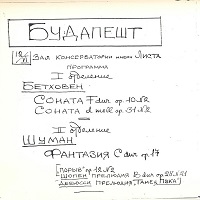 БУДАПЕШТ
12/XI ЗАЛ КОНСЕРВАТОРИИ имени ЛИСТА
ПРОГРАММА
I отделение
БЕТХОВЕН
СОНАТА F dur op. 10 №2
СОНАТА d moll op. 31 №2
II отделение
ШУМАН
ФАНТАЗИЯ C dur op. 17
"ПОРЫВ" op. 12 №2
ШОПЕН ПРЕЛЮДИЯ B dur op. 28 №21
ДЕБЮССИ ПРЕЛЮДИЯ "ТАНЕЦ ПЕКА"